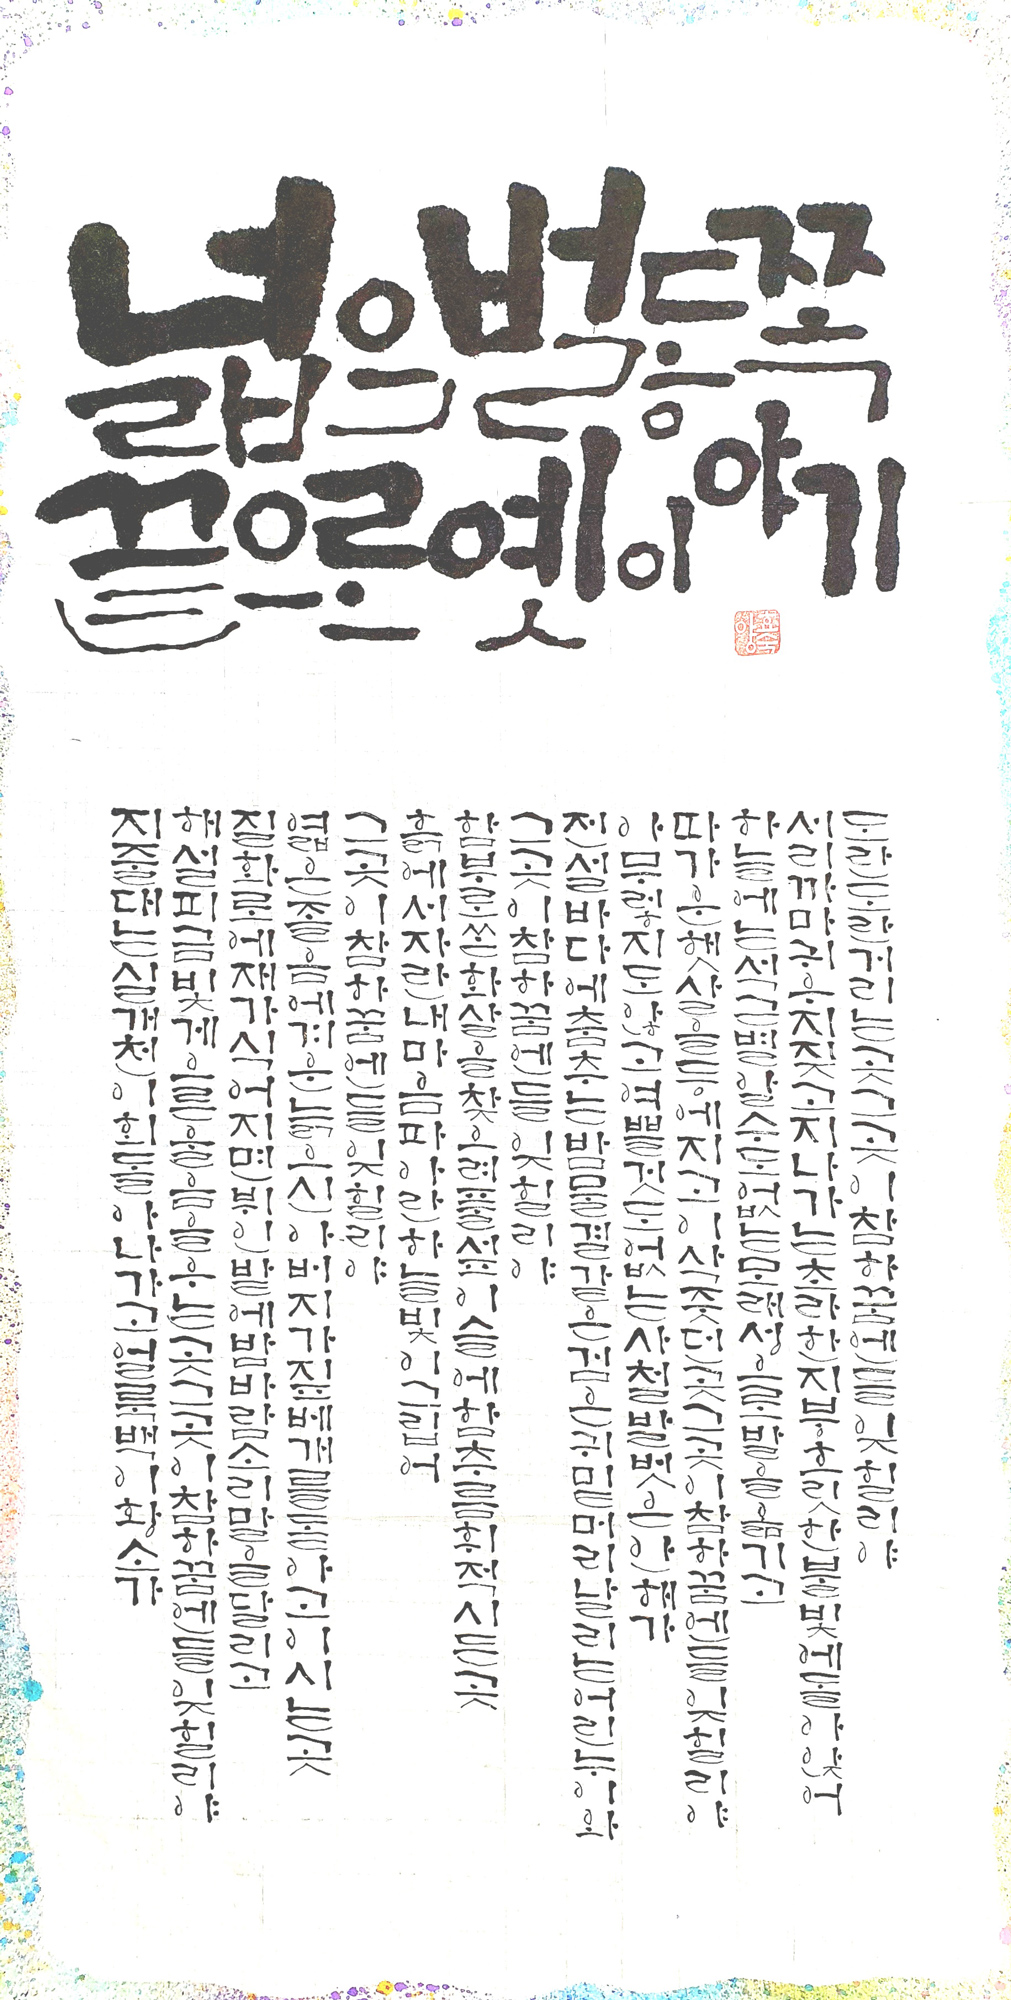 넓은벌동쪽
끝으로옛이야기
지줄대는실개천이회돌아나가고얼룩백이황소가
해설피금빛게으른울음을우는곳그곳이참하꿈엔들잊힐리야
질화로에재가식어지면뷔인밭에밤바람소리말을달리고
엷은졸음에겨운늙으신아버지가짚베개를돋아고이시는곳
그곳이참하꿈엔들잊힐리야
흙에서자란내마음파아란하늘빛이그립어
함부로쏜화살을찾으려풀섶이슬에함추름휘적시든곳
그곳이참하꿈엔들잊힐리야
전설바다에춤추는밤물결같은검은귀밑머리날리는어린누이와
아무렇지도않고여쁠것도없는사철발벗은안해가
따가운햇살을등에지고이삭줏던곳그곳이참하꿈엔들잊힐리야
하늘에는석근별알수도없는모래성으로발을옮기고
서리까마귀우지짖고지나가는초라한지붕흐릿한불빛에돌아앉어
도란도란거리는곳그곳이참하꿈엔들잊힐리야